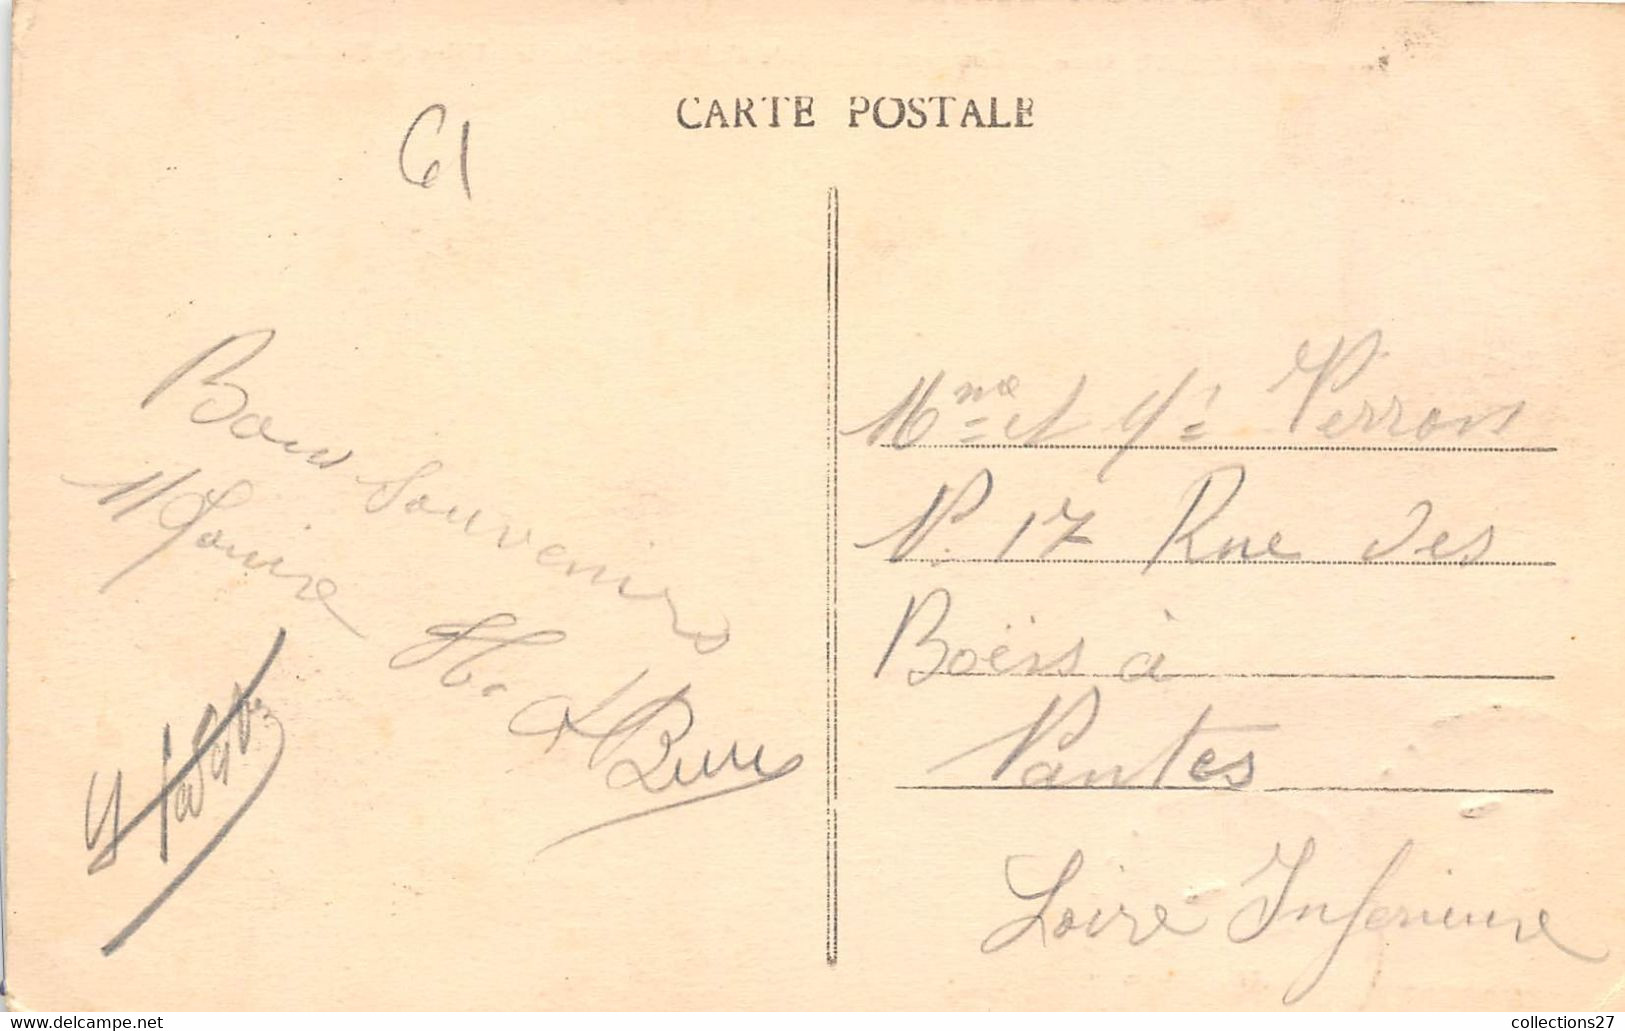 CARTE POSTALE
61
Bons Souvenirs
Louise
Mme et Perron
N. 17 Rue des
Boërs à
Nantes
Loire Inferieure
www.delcampe.net
collections27